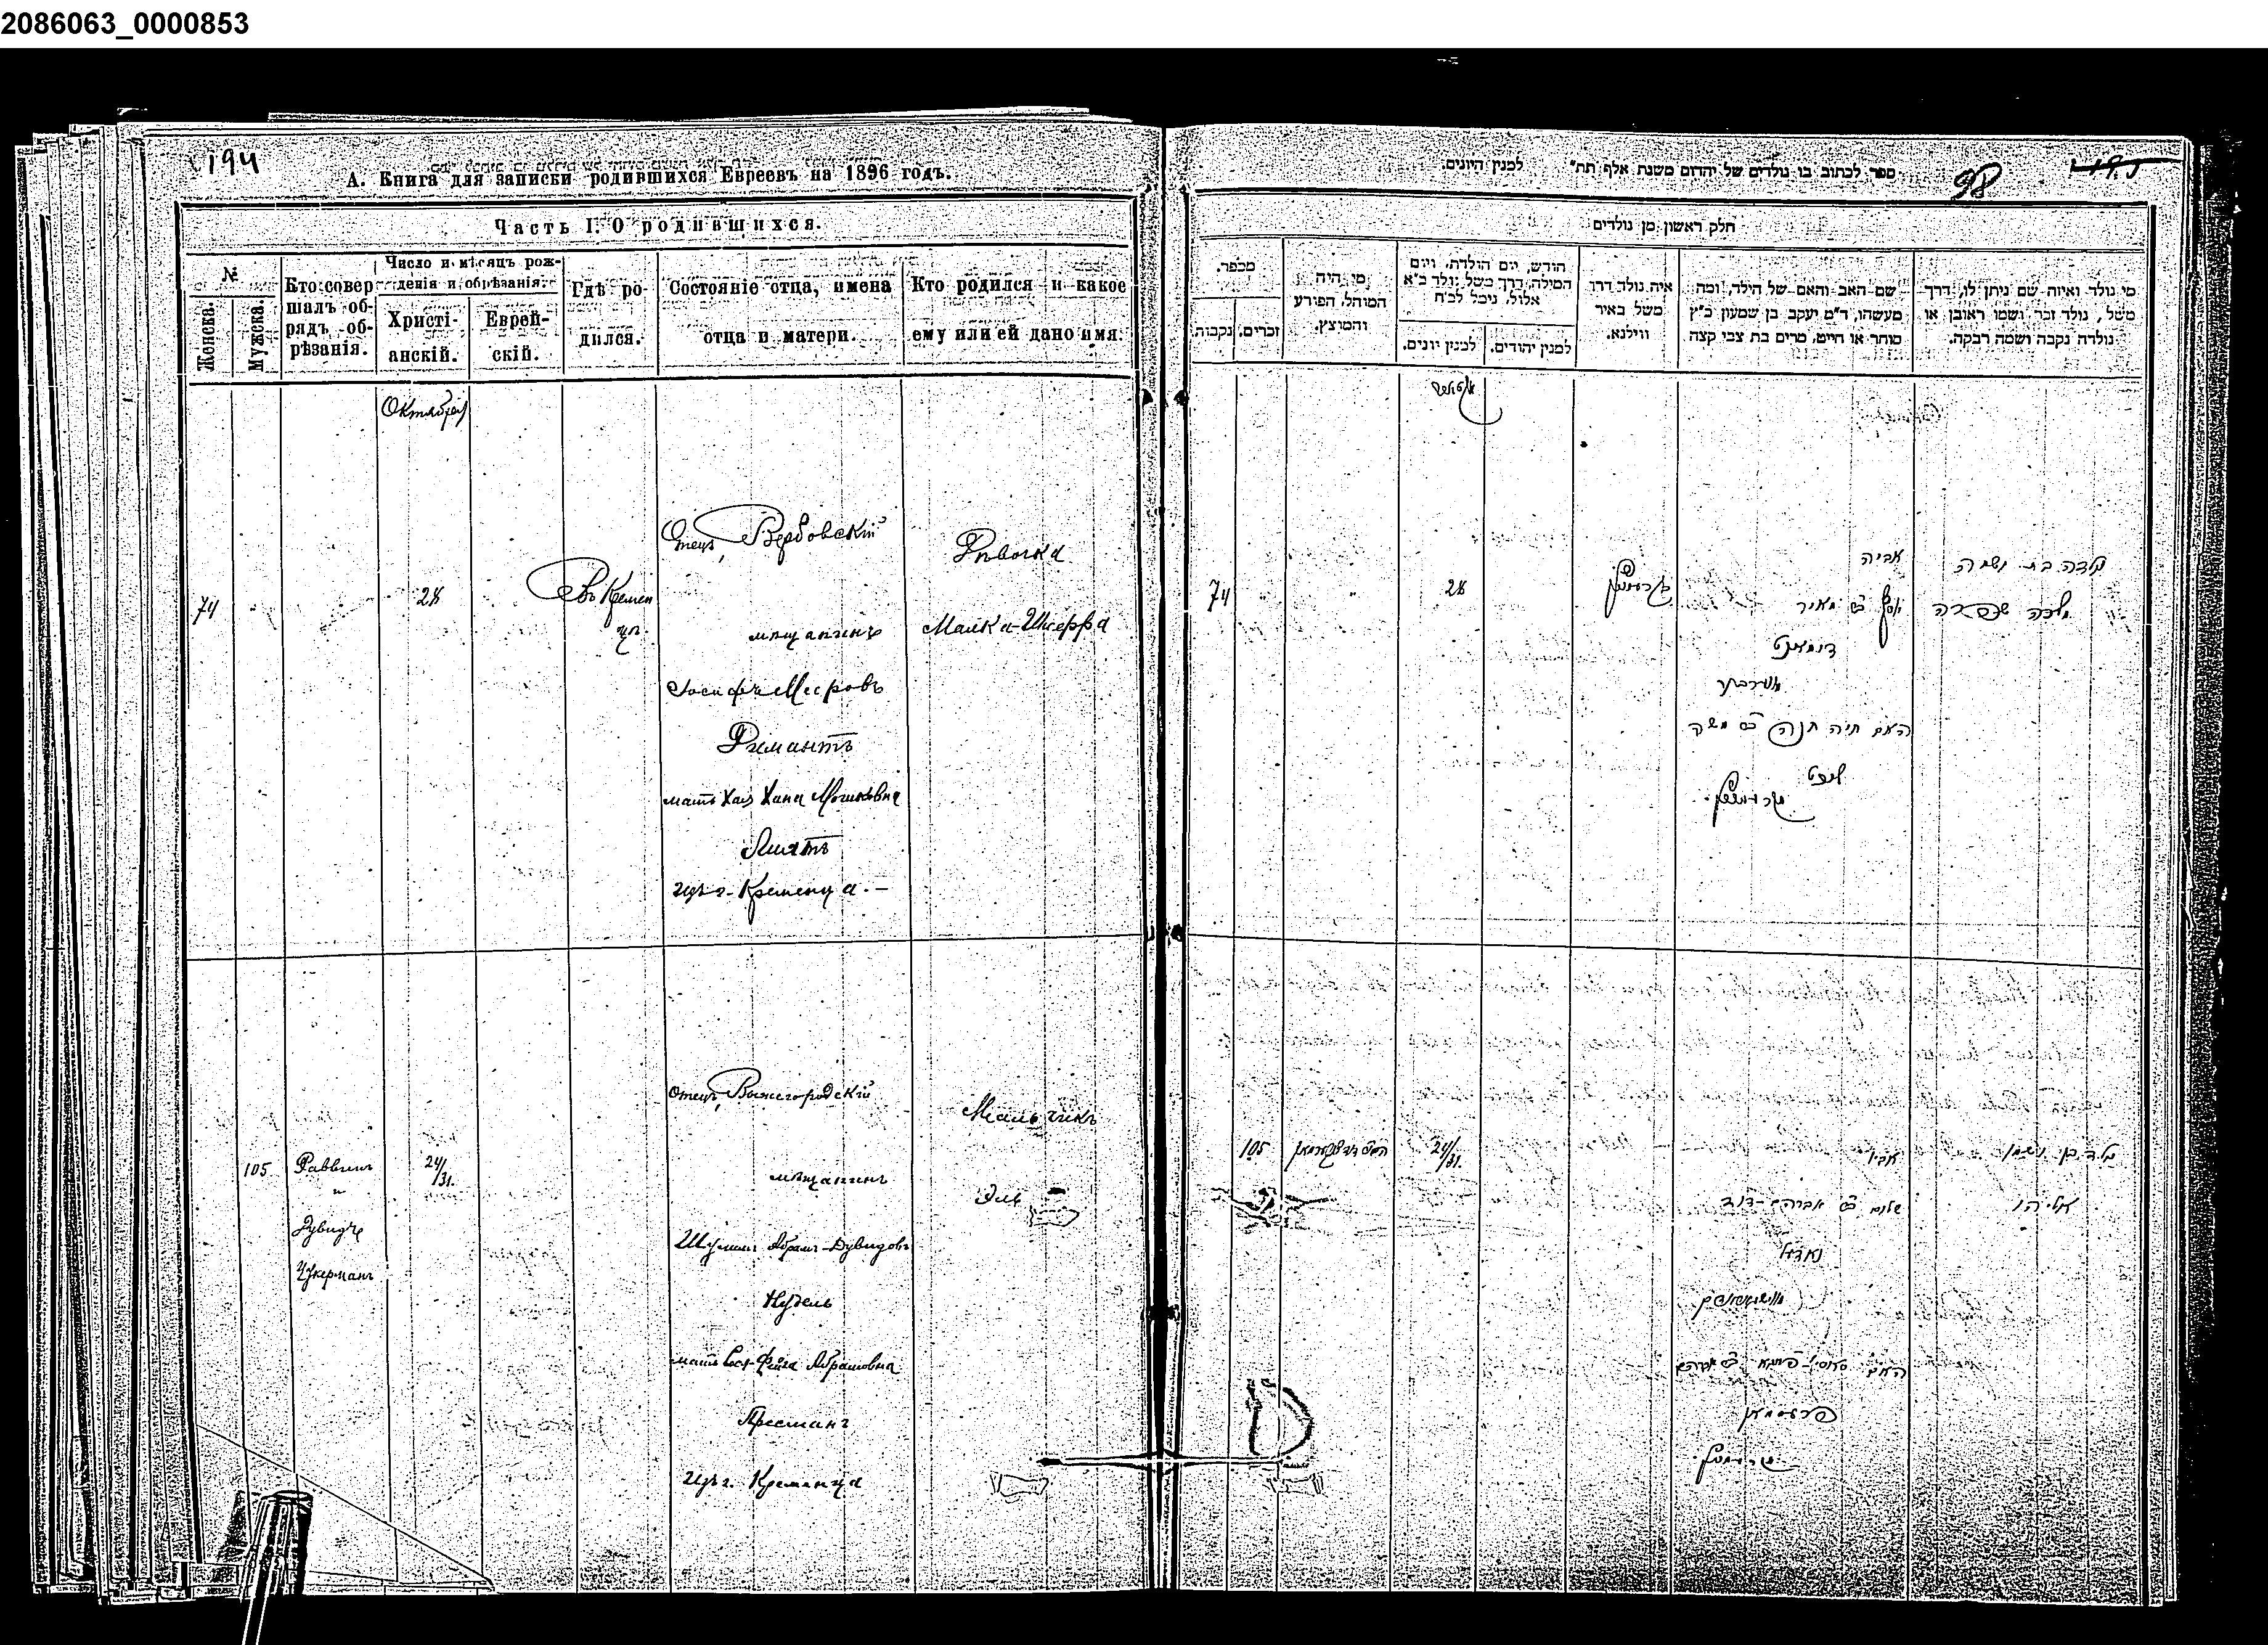 2086063_0000853
194
А. Книга для записки родившихся Евреевъ на 1896 годъ.
Часть I. О родившихся.
№
Женска.
Мужска.
Кто совер
шалъ об-
рядъ об-
рѣзанія.
Число и мѣсяцъ рож-
денія и обрѣзанія.
Христі-
анскій.
Еврей-
скій.
Гдѣ ро-
дился.
Состояніе отца, имена
отца и матери.
Кто родился и какое
ему или ей дано имя.
Октября
74
28
Въ Кремен
цѣ.
Отецъ, Вербовскій
мѣщанинъ
Іосифъ Меєровъ
Димантъ
мать Хая Хана Мошковна
изъ г. Кременца. —
Дѣвочка
Малка-Шифра
105
Раввинъ
и
Дувидъ
Цукерманъ
24/31.
Отецъ, Вышегородскій
мѣщанинъ
Шулимъ Абрамъ-Дувидовъ
Нудель
мать Рося-Фейга Абрамовна
Пресманъ
изъ г. Кременца
Мальчикъ
Эль
ספר לכתוב בו נולדים של יהודים משנת אלף תת״
למנין היונים.
98
חלק ראשון מן נולדים
מספר.
נקבות
זכרים.
מי היה
המוהל, הפורע
והמוצץ.
הודש, יום הולדת, ויום
המילה, דרך משל נולד כ״א
אלול, נימל לכ״ח
למנין יונים.
למנין יהודים.
איה נולד דרך
משל באיר
ווילנא.
שם האב והאם של הילד, ומה
מעשהו, ד״מ יעקב בן שמעון כ״ץ
סוחר או חייט, מרים בת צבי קצה
מי נולד ואיזה שם ניתן לו, דרך
משל, נולד זכר ושמו ראובן או
נולדה נקבה ושמה רבקה.
74
28
אביה
יוסף ב״ר מאיר
דימאנט
האם חיה חנה ב״ר משה
נולדה בת ושמה
מלכה שפרה
105
24/31.
אביו
שלום ב״ר אברהם-דוד
נאדיל
פרעסמאן
נולד בן ושמו
אליהו